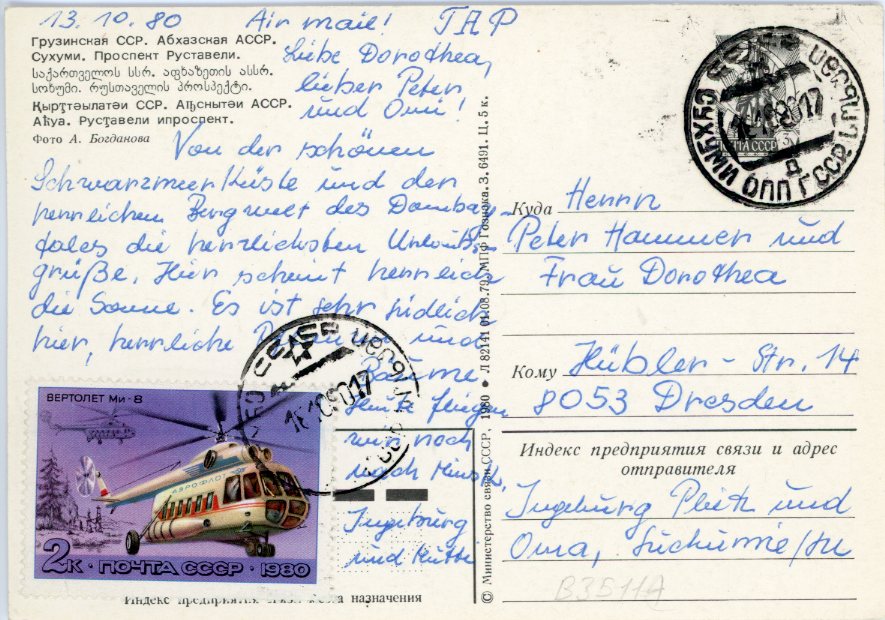 13.10.80 Air mail! ГДР
Грузинская ССР. Абхазская АССР.
Сухуми. Проспект Руставели.
საქართველოს სსრ. აფხაზეთის ასსრ.
სოხუმი. რუსთაველის პროსპექტი.
Қырҭтәылатәи ССР. Аԥснытәи АССР.
Аҟуа. Русҭавели ипроспект.
Фото А. Богданова
Liebe Dorothea,
lieber Peter
und Omi!
Von der schönen
Schwarzmeerküste und der
herrlichen Bergwelt des Dombay-
tales die herzlichsten Urlaubs-
grüße. Hier scheint herrlich
die Sonne. Es ist sehr südlich
hier, herrliche und
Bäume
Heute fliegen
wir noch
nach Minsk.
Ingeburg
und Mutti
ВЕРТОЛЕТ Ми-8
АЭРОФЛОТ
2к • ПОЧТА СССР • 1980
Индекс предприятия связи места назначения
© Министерство связи СССР, 1980 • Л 82141 01.08.79. МПФ Гознака. З. 6491. Ц. 5 к.
ПОЧТА СССР
Куда Herrn
Peter Hammer und
Frau Dorothea
Кому Hübler-Str. 14
8053 Dresden
Индекс предприятия связи и адрес
отправителя
Ingeburg und
Oma, Suchumie/SU
B3511A